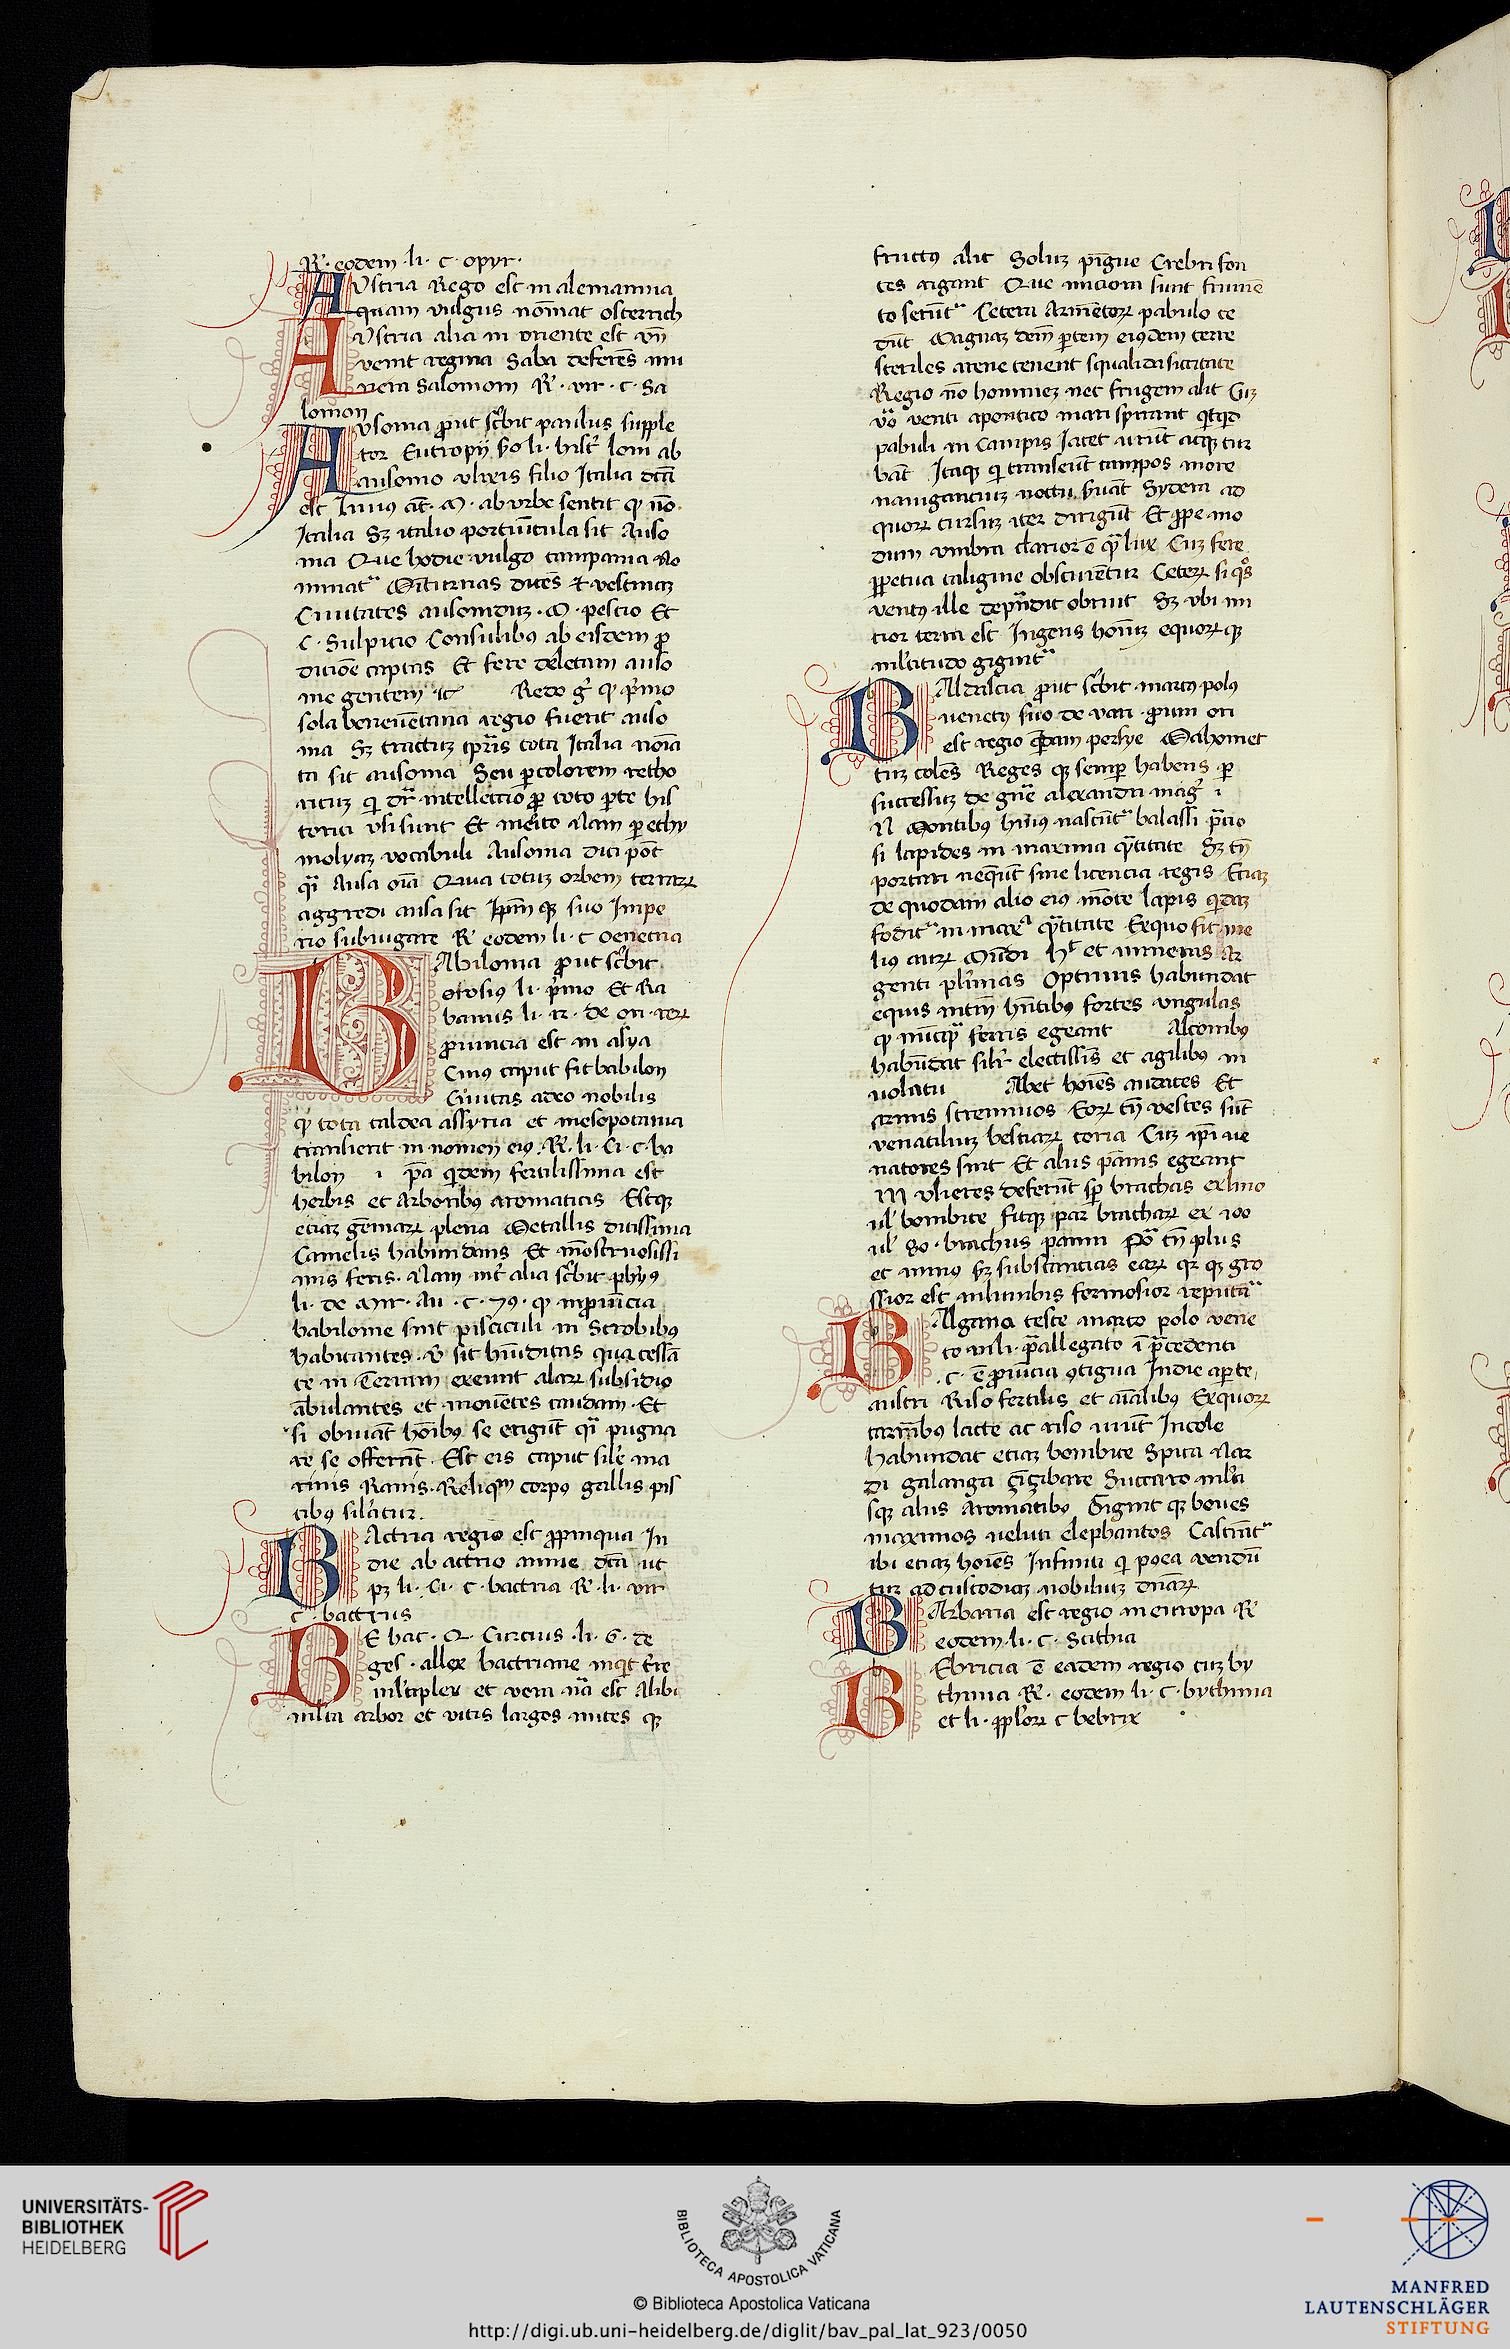 R. eodem li. c. opyr.
AVstria Rego est in alemannia
quam vulgus nōinat osterrich
AVstria alia in oriente est vn̄
venit regina Saba deferēs mu
nera Salomoni R. vir. c. Sa
lomon
AVsonia prout scbit paulus supple
tor Eutropÿ
ausonio vlixis filio Italia dcā
est
Italia Sꝫ italie portiūcula sit Auso
nia Que hodie vulgo campania No
minat᷑
Ciuitates ausonidū . M . petio Et
C. Sulpitio Consulibꝰ ab eisdem ꝓ
ditiōe captas Et fere deletam auso
nie gentem
sola beneuētana regio fuerit auso
nia Sꝫ tractu tp̄ris tota Italia noīa
ta sit ausonia Seu ꝑ colorem retho
ricuꝫ
torici vsi sunt Et merito Nam ꝑ ethy
molyaꝫ vocabuli Ausonia dici pōt
q̄i Ausa oīa Qua totuꝫ orbem terraꝝ
aggredi ausa sit Ipm̄ qꝫ suo Impe
rio subiugare R eodem li. c Oenetria
BAbilonia prout scbit
orosiꝰ li. p̄mo Et Ra
banus li. 12. de ori. reꝝ
ꝓuincia est in asya
Cuiꝰ caput sit babilon
Ciuitas adeo nobilis
qꝫ tota caldea assyria et mesopotamia
transierit in nomen eiꝰ. R. li. Ci. c. ba
bilon i p̄a qidem fertilissima est
herbis et Arboribꝰ aromaticis Estqꝫ
etiaꝫ gēmaꝝ plena Metallis ditissima
Camelis habundans Et mōstruosissi
mis feris. Nam int᷑ alia scbit
li. de Mir. Au . c. 79. qꝫ in ꝓuīcia
babilonie sunt pisciculi in Scrobibꝰ
habitantes. v̄ sit hūiditas qua cessā
te in Terram exeunt alaꝝ subsidio
ābulantes et mouētes caudam. Et
si obuiāt hōibꝰ se erigūt q̄i pugna
re se offerāt. Est eis caput sile ma
rinis Ranis. Reliqm̄ corpꝰ gallis pis
cibꝰ silatur.
BActria regio est ꝓpinqua In
die ab actrio amne dcā ut
pꝫ li. Ci. c. bactria R. li. vir
c. bactrus
DE hac. Q. Curcius. li. 6. de
ges. allex bactriane inqit t̄re
multiplex et vera nā est Alibi
multa arbor et vitis largos mites qꝫ
fructꝰ alit Soluꝫ pīgue Crebri fon
tes rigant Que miciora sunt frumē
to serūt᷑ Cetera Armētoꝝ pabulo ce
dūt Magnaꝫ dein̄ ꝑtem eiꝰdem terre
steriles arene tenent squalida siccitate
Regio nō hominē nec frugem alit Cuꝫ
vō venti a pontico mari spirant qicqid
pabuli in Campis Iacet
bāt Itaqꝫ qi transeūt campos more
nauigantiuꝫ noctu Suāt Sydera ad
quoꝝ cursuꝫ iter dirigūt Et ꝓpe mo
dum vmbra clarior ē qꝫ lux Cuꝫ fere
ꝑpetua caligine obscurētur Ceteꝝ si qᵒs
ventꝰ ille depn̄dit obruit Sꝫ vbi mi
tior terra est Ingens hom̄ꝫ equoꝝ qꝫ
multitudo gignit᷑
BAldascia prout scbit marcꝰ polꝰ
venetꝰ suo de vari. ꝓuin ori
est regio qdam persye Mahomet
tuꝫ colēs Reges qꝫ semꝑ habens ꝑ
successuꝫ de gn̄e alexandri maḡ
N Montibꝰ huiꝰ nascūt᷑ balassi p̄cio
si lapides in maxima q̄ntitate Sꝫ tn̄
portari nequeūt sine licencia regis Etiaꝫ
de quodam alio eiꝰ mōte lapis qidaꝫ
fodit᷑ in maxᵃ q̄ntitate Ex quo fit me
liꝰ aurꝫ Mūdi Hꝫ et mineras Ar
genti plimas Optimis habundat
equis intm̄ hn̄tibꝰ fortes vngulas
qꝫ nūc q̄ ferris egeant Alconibꝰ
habūdat silr electissīs et agilibꝰ in
uolatu Abet hoīes audaces Et
armis strennuos Eoꝝ tn̄ vestes sūt
venatiliuꝫ bestiaꝝ coria Cuꝫ ip̄i ve
natores sint Et alijs pānis egeant
Mulieres deferūt sꝑ brachas ex lino
ul' bombice fitqꝫ par brachaꝝ ex 100
ul' 80. brachijs panni
et minꝰ
ssior est mulieribus formosior reputat᷑
BAlgana teste marco polo vene
to ubi p̄allegato ī p̄cedenti
c. ē ꝓuincia ꝯtigua Indie a ꝑte
austri Riso fertilis et aīalibꝰ Ex quoꝝ
carnibꝰ lacte ac riso viuūt Incole
Habundat etiaꝫ bombice Spica Nar
di galanga Zīzibare Zuccaro mult
sqꝫ alijs Aromatibꝰ Gignit qꝫ boues
maximos veluti elephantos Castrāt᷑
ibi etiaꝫ hoīes Infiniti qi poea vendū
tur ad custodiaꝫ nobiliuꝫ dn̄aꝝ
BArbaria est regio in europa R
eodem. li. c. Scithia
BEbricia ē eadem regio cuꝫ by
thinia R. eodem li. c. bythinia
et li. ꝓploꝝ c bebrix
UNIVERSITÄTS-
BIBLIOTHEK
HEIDELBERG
BIBLIOTECA APOSTOLICA VATICANA
© Biblioteca Apostolica Vaticana
http://digi.ub.uni-heidelberg.de/diglit/bav_pal_lat_923/0050
MANFRED
LAUTENSCHLÄGER
STIFTUNG